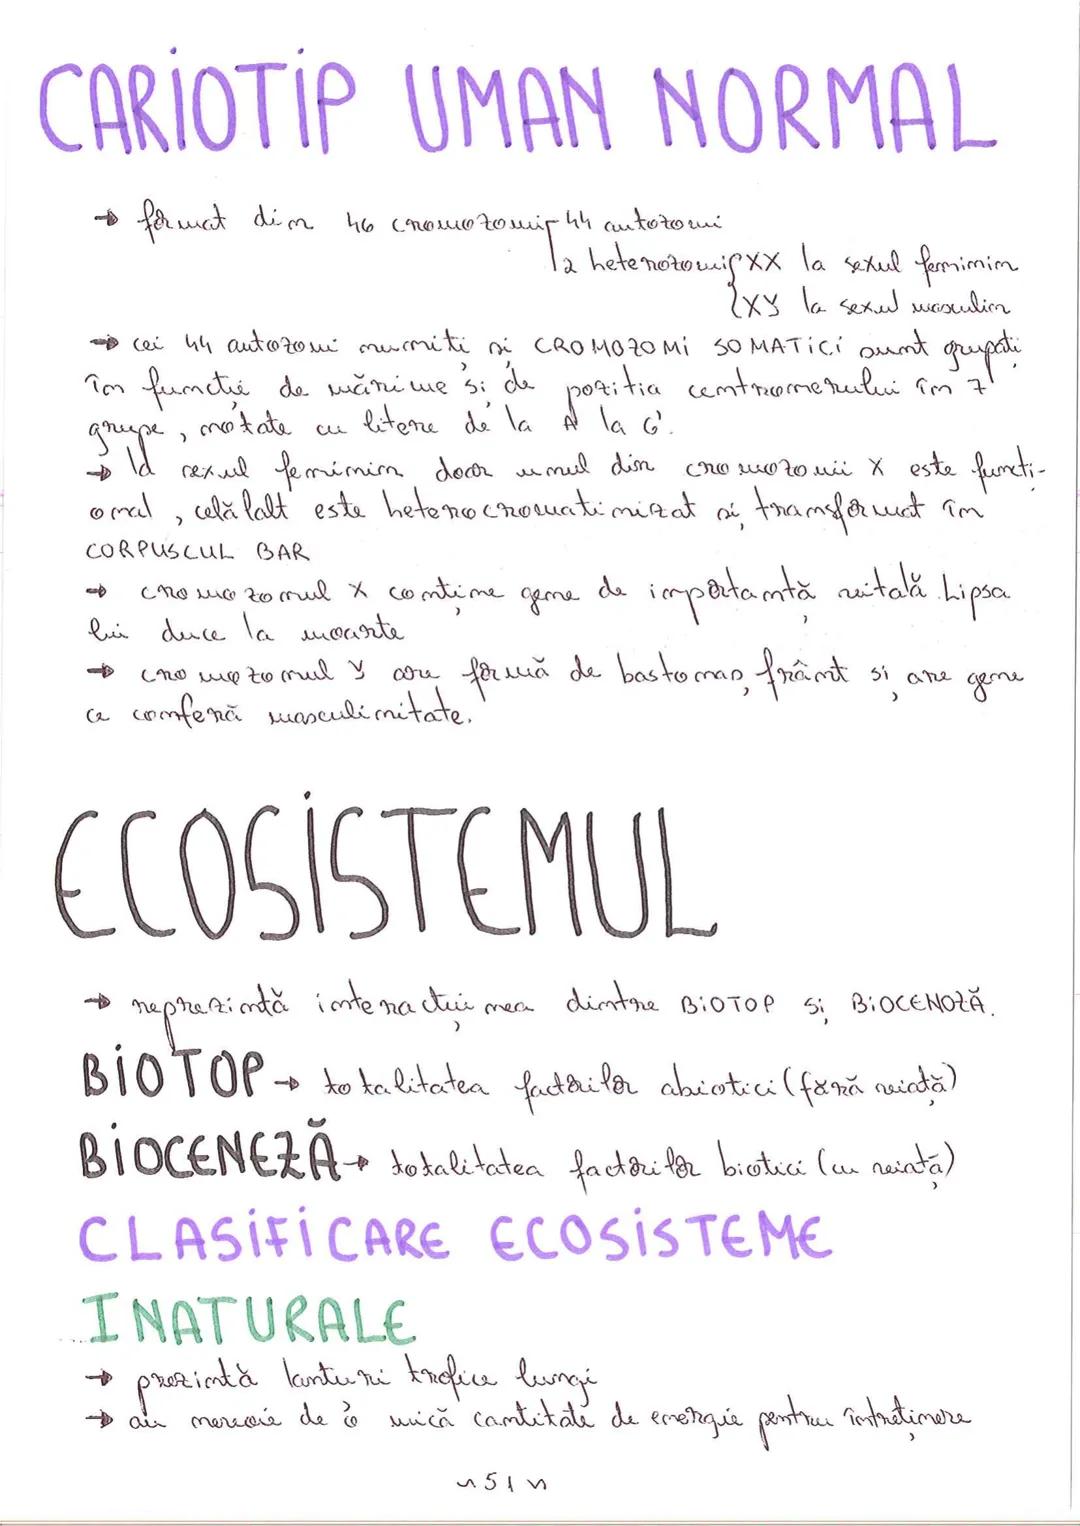 CARIOTIP UMAN NORMAL
→ format din 46 cromozomi 44 autozomi
2 heterozomi XX la sexul feminin
XY la sexul masculin
→ cei 44 autozomi numiți și CROMOZOMI SOMATICI sunt grupați
în funcție de mărime și de poziția centromerului în 7
grupe, notate cu litere de la A la G.
→ la sexul feminin doar unul din cromozomii X este functi-
onal, celălalt este heterocromatinizat și transformat în
CORPUSCUL BAR
→ cromozomul X conține gene de importanță vitală. Lipsa
lui duce la moarte
→ cromozomul Y are formă de bastonaș frânt și are gene
ce conferă masculinitate.
ECOSISTEMUL
→ reprezintă interacțiunea dintre BIOTOP și BIOCENOZĂ.
BIOTOP → totalitatea factorilor abiotici (fără viață)
BIOCENEZĂ → totalitatea factorilor biotici (cu viață)
CLASIFICARE ECOSISTEME
I NATURALE
→ prezintă lanturi trofice lungi
→ au nevoie de o mică cantitate de energie pentru întreținere
~ 51 ~